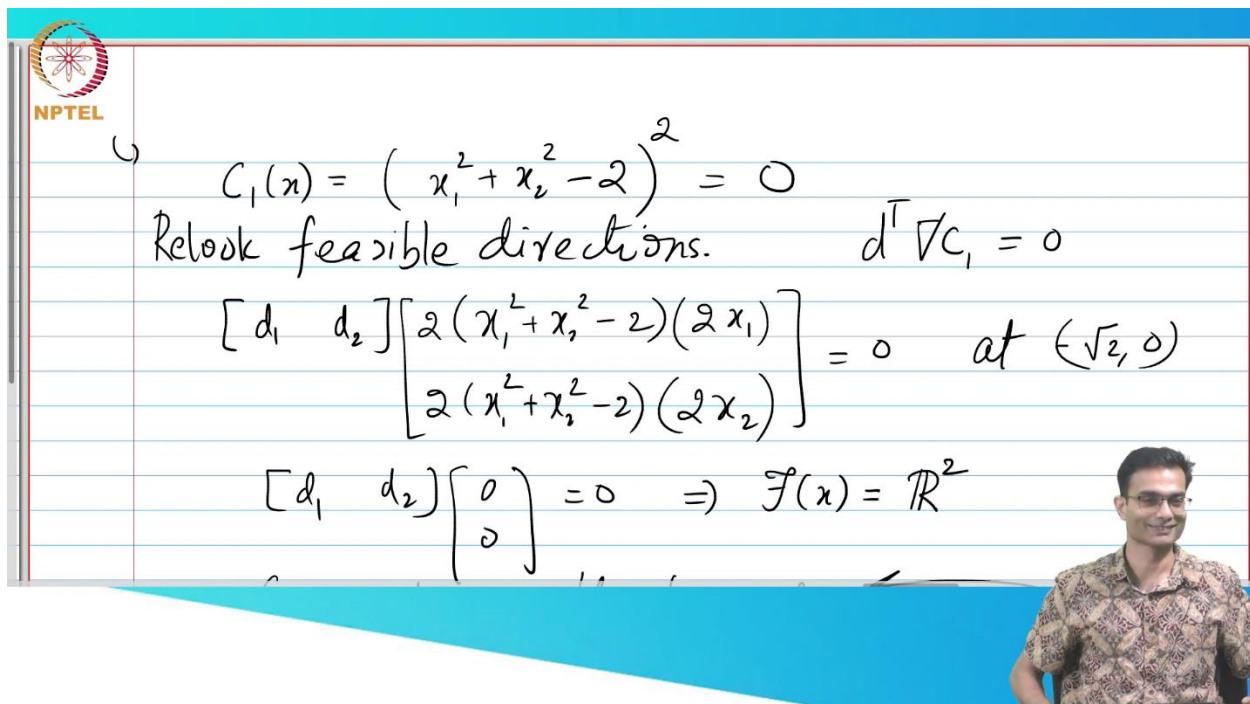 NPTEL
C₁(x) = ( x₁² + x₂² - 2 )² = 0
Relook feasible directions. dᵀ ∇C₁ = 0
[ d₁ d₂ ] [ 2 ( x₁² + x₂² - 2 ) ( 2 x₁ )
2 ( x₁² + x₂² - 2 ) ( 2 x₂ ) ] = 0 at (-√2, 0)
[ d₁ d₂ ] [ 0
0 ] = 0 ⇒ ℱ(x) = ℝ²